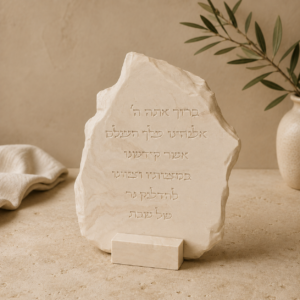 ברוך אתה ה'
אלהינו מלך העולם
אשר קידשנו
במצותיו וציונו
להדליק נר
של שבת